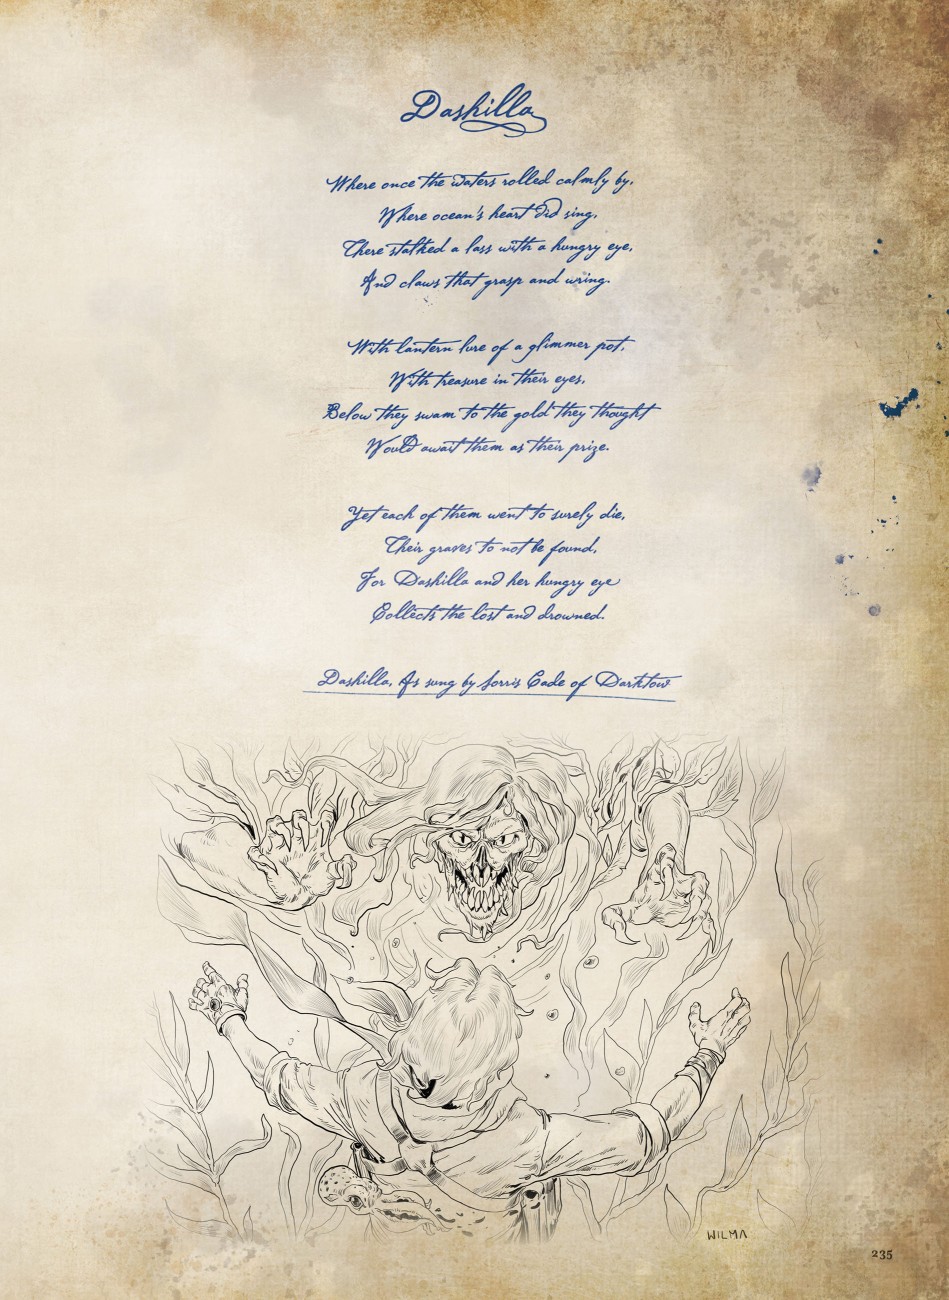 Dashilla
Where once the waters rolled calmly by,
Where ocean's heart did sing,
There stalked a lass with a hungry eye,
And claws that grasp and wring.
With lantern lure of a glimmer pot,
With treasure in their eyes,
Below they swam to the gold they thought
Would await them as their prize.
Yet each of them went to surely die,
Their graves to not be found,
For Dashilla and her hungry eye
Collects the lost and drowned.
Dashilla, As sung by Sorris Cade of Darktow
WILMA
235